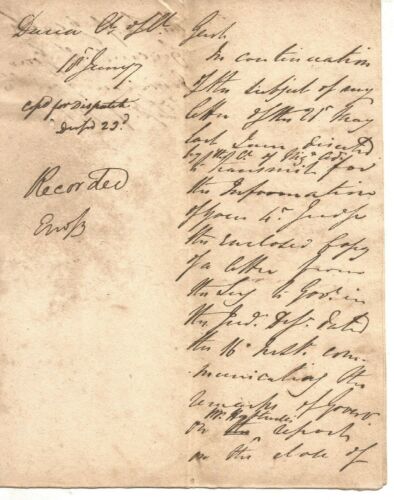 Dacca Ct of
Cpd for Dispatch
Recorded
Gent
In continuation
of the subject of my
letter of the 21st May
last I am directed
by the Ct of
to transmit for
the Information
of your Ct
the enclosed copy
of a letter from
the Secy to Govt. in
the Jud. Dept. dated
the 16th Inst. com-
municating the
remarks of Govt.
Mr
on the report
on the state of